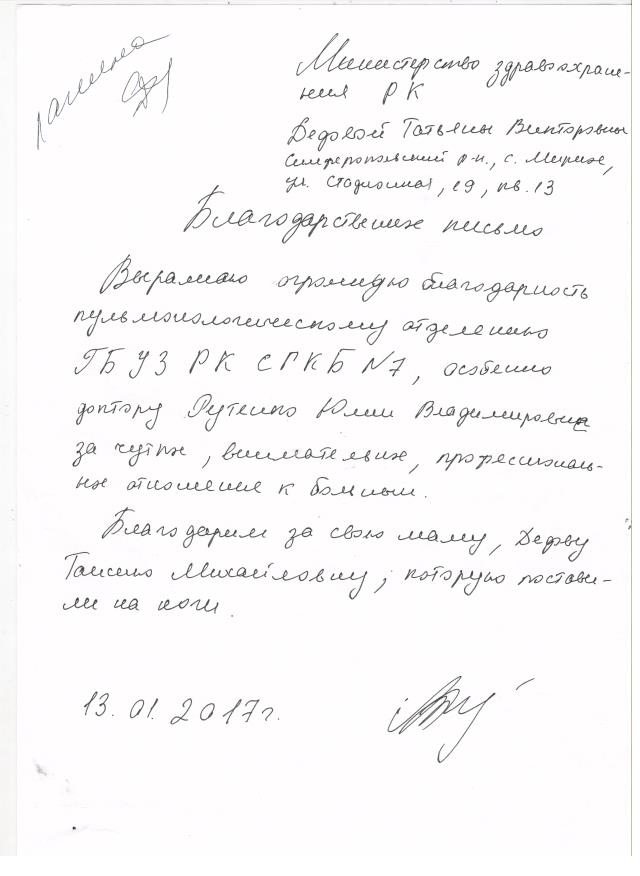 Министерство здравоохране-
ния РК
Дедовой Татьяны Викторовны
Симферопольский р-н., с. Мирное,
ул. Стадионная, 19, кв. 13
Благодарственное письмо
Выражаю огромную благодарность
пульмонологическому отделению
ГБУЗ РК СГКБ №7, особенно
доктору Рутенко Юлии Владимировне
за чуткое, внимательное, профессиональ-
ное отношение к больным.
Благодарим за свою маму, Дедову
Таисию Михайловну, которую постави-
ли на ноги.
13.01.2017г.